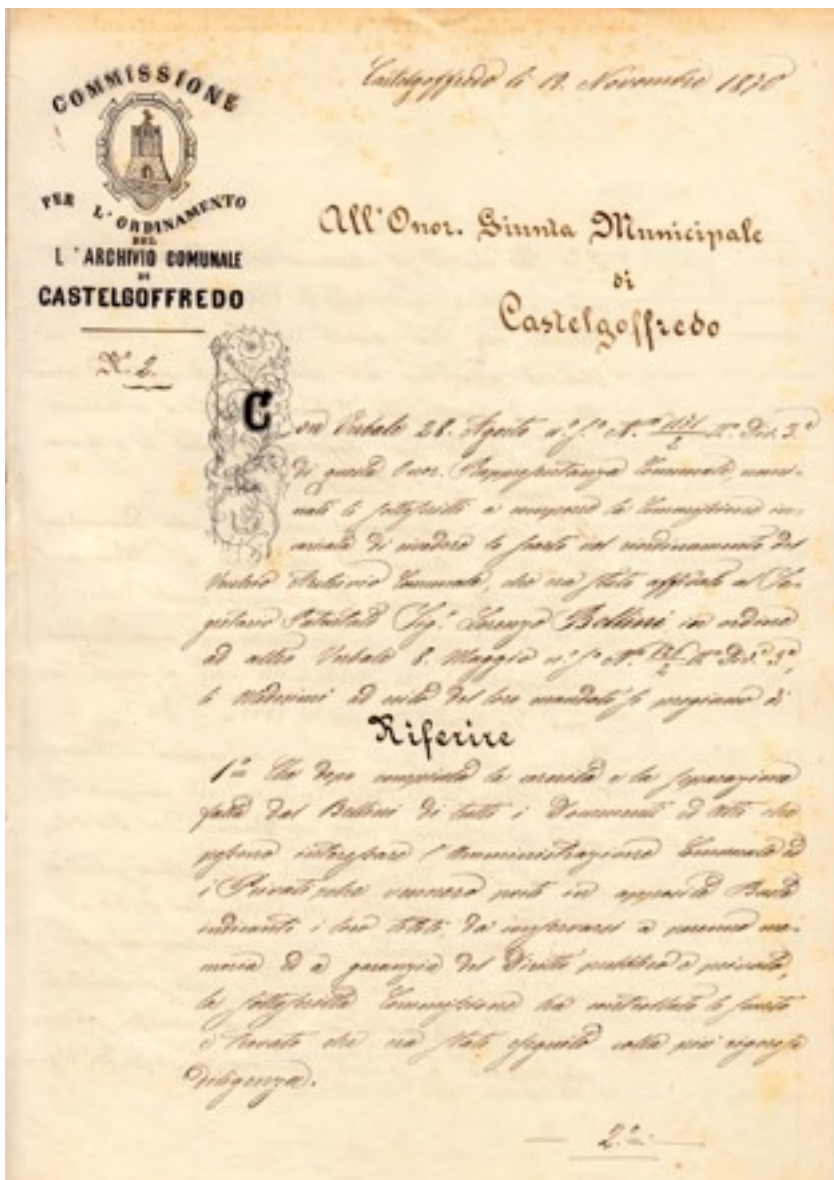 COMMISSIONE
PER L'ORDINAMENTO
DEL
L'ARCHIVIO COMUNALE
DI
CASTELGOFFREDO
N.° 2
Castelgoffredo li 19. Novembre 1870
All'Onor. Giunta Municipale
di
Castelgoffredo
Con Verbale 28. Agosto
di questa Onor. Rappresentanza Comunale, nomi-
nati li sottoscritti a comporre la Commissione in-
caricata di lo scarto nel riordinamento del
Vecchio Archivio Comunale, che era stato affidato al Se-
gretario Sig.r Lorenzo Bellini in ordine
ad altro Verbale 8. Maggio
li medesimi ad esito del loro mandato si pregiano di
Riferire
1.° Che dopo compiuta la cernita e la separazione
fatta dal Bellini di tutti i Documenti ed Atti che
possono interessare l'Amministrazione Comunale ed
i Privati, che vennero posti in apposite Buste
indicanti i loro titoli, da conservarsi a perenne me-
moria ed a garanzia del Diritto pubblico e privato,
la sottoscritta Commissione ha controllato lo scarto
e trovato che era stato eseguito colla più rigorosa
diligenza.
2.°